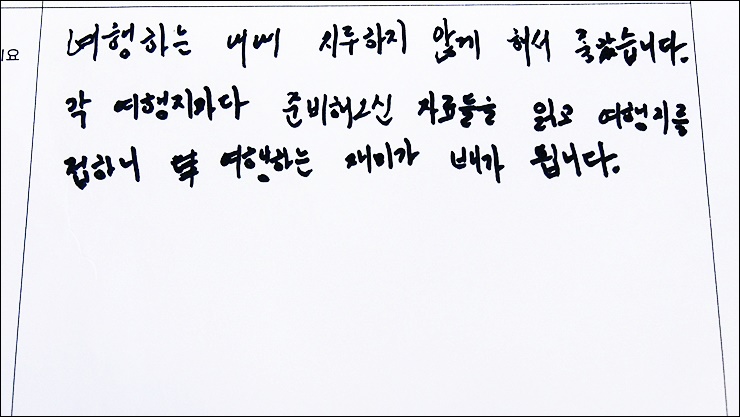 여행하는 내내 지루하지 않게 해서 좋았습니다.
각 여행지마다 준비해오신 자료들을 읽고 여행지를
접하니 여행하는 재미가 배가 됩니다.
요